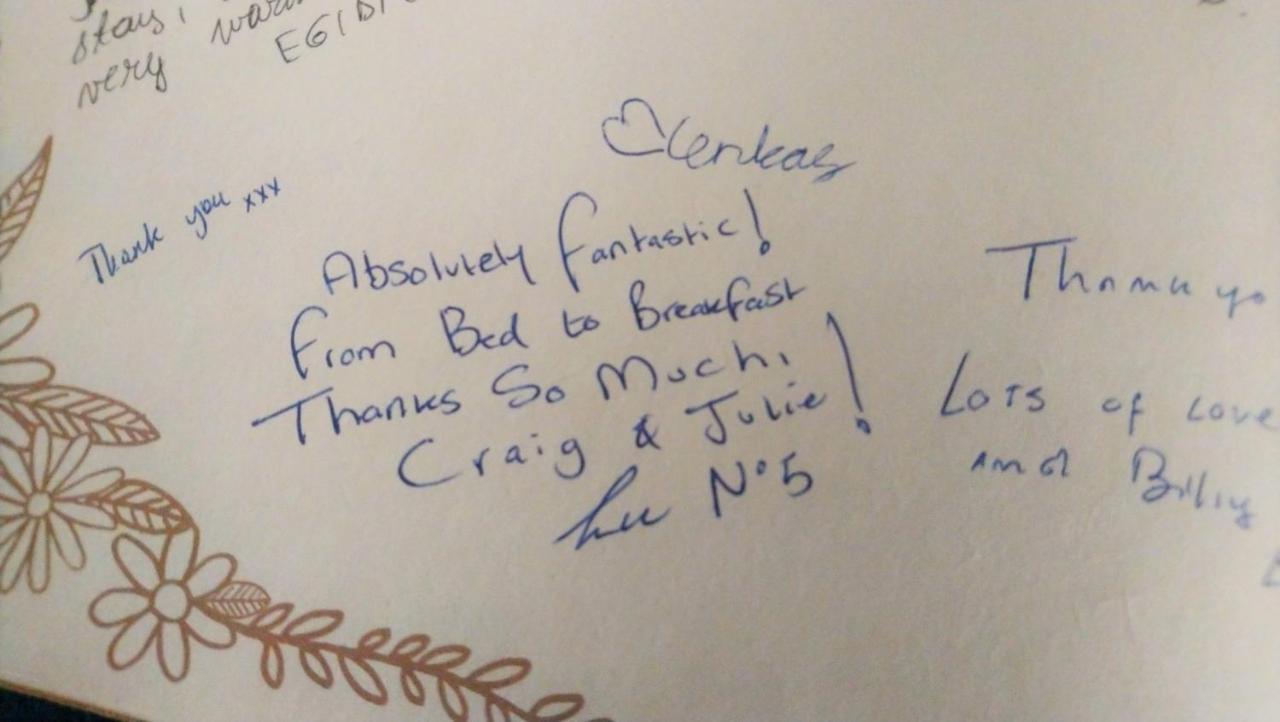 stay,
very
Thank you xxx
Absolutely fantastic!
from Bed to Breakfast
Thanks So Much,
Craig & Julie!
N°5
Lots of Love
and Billy